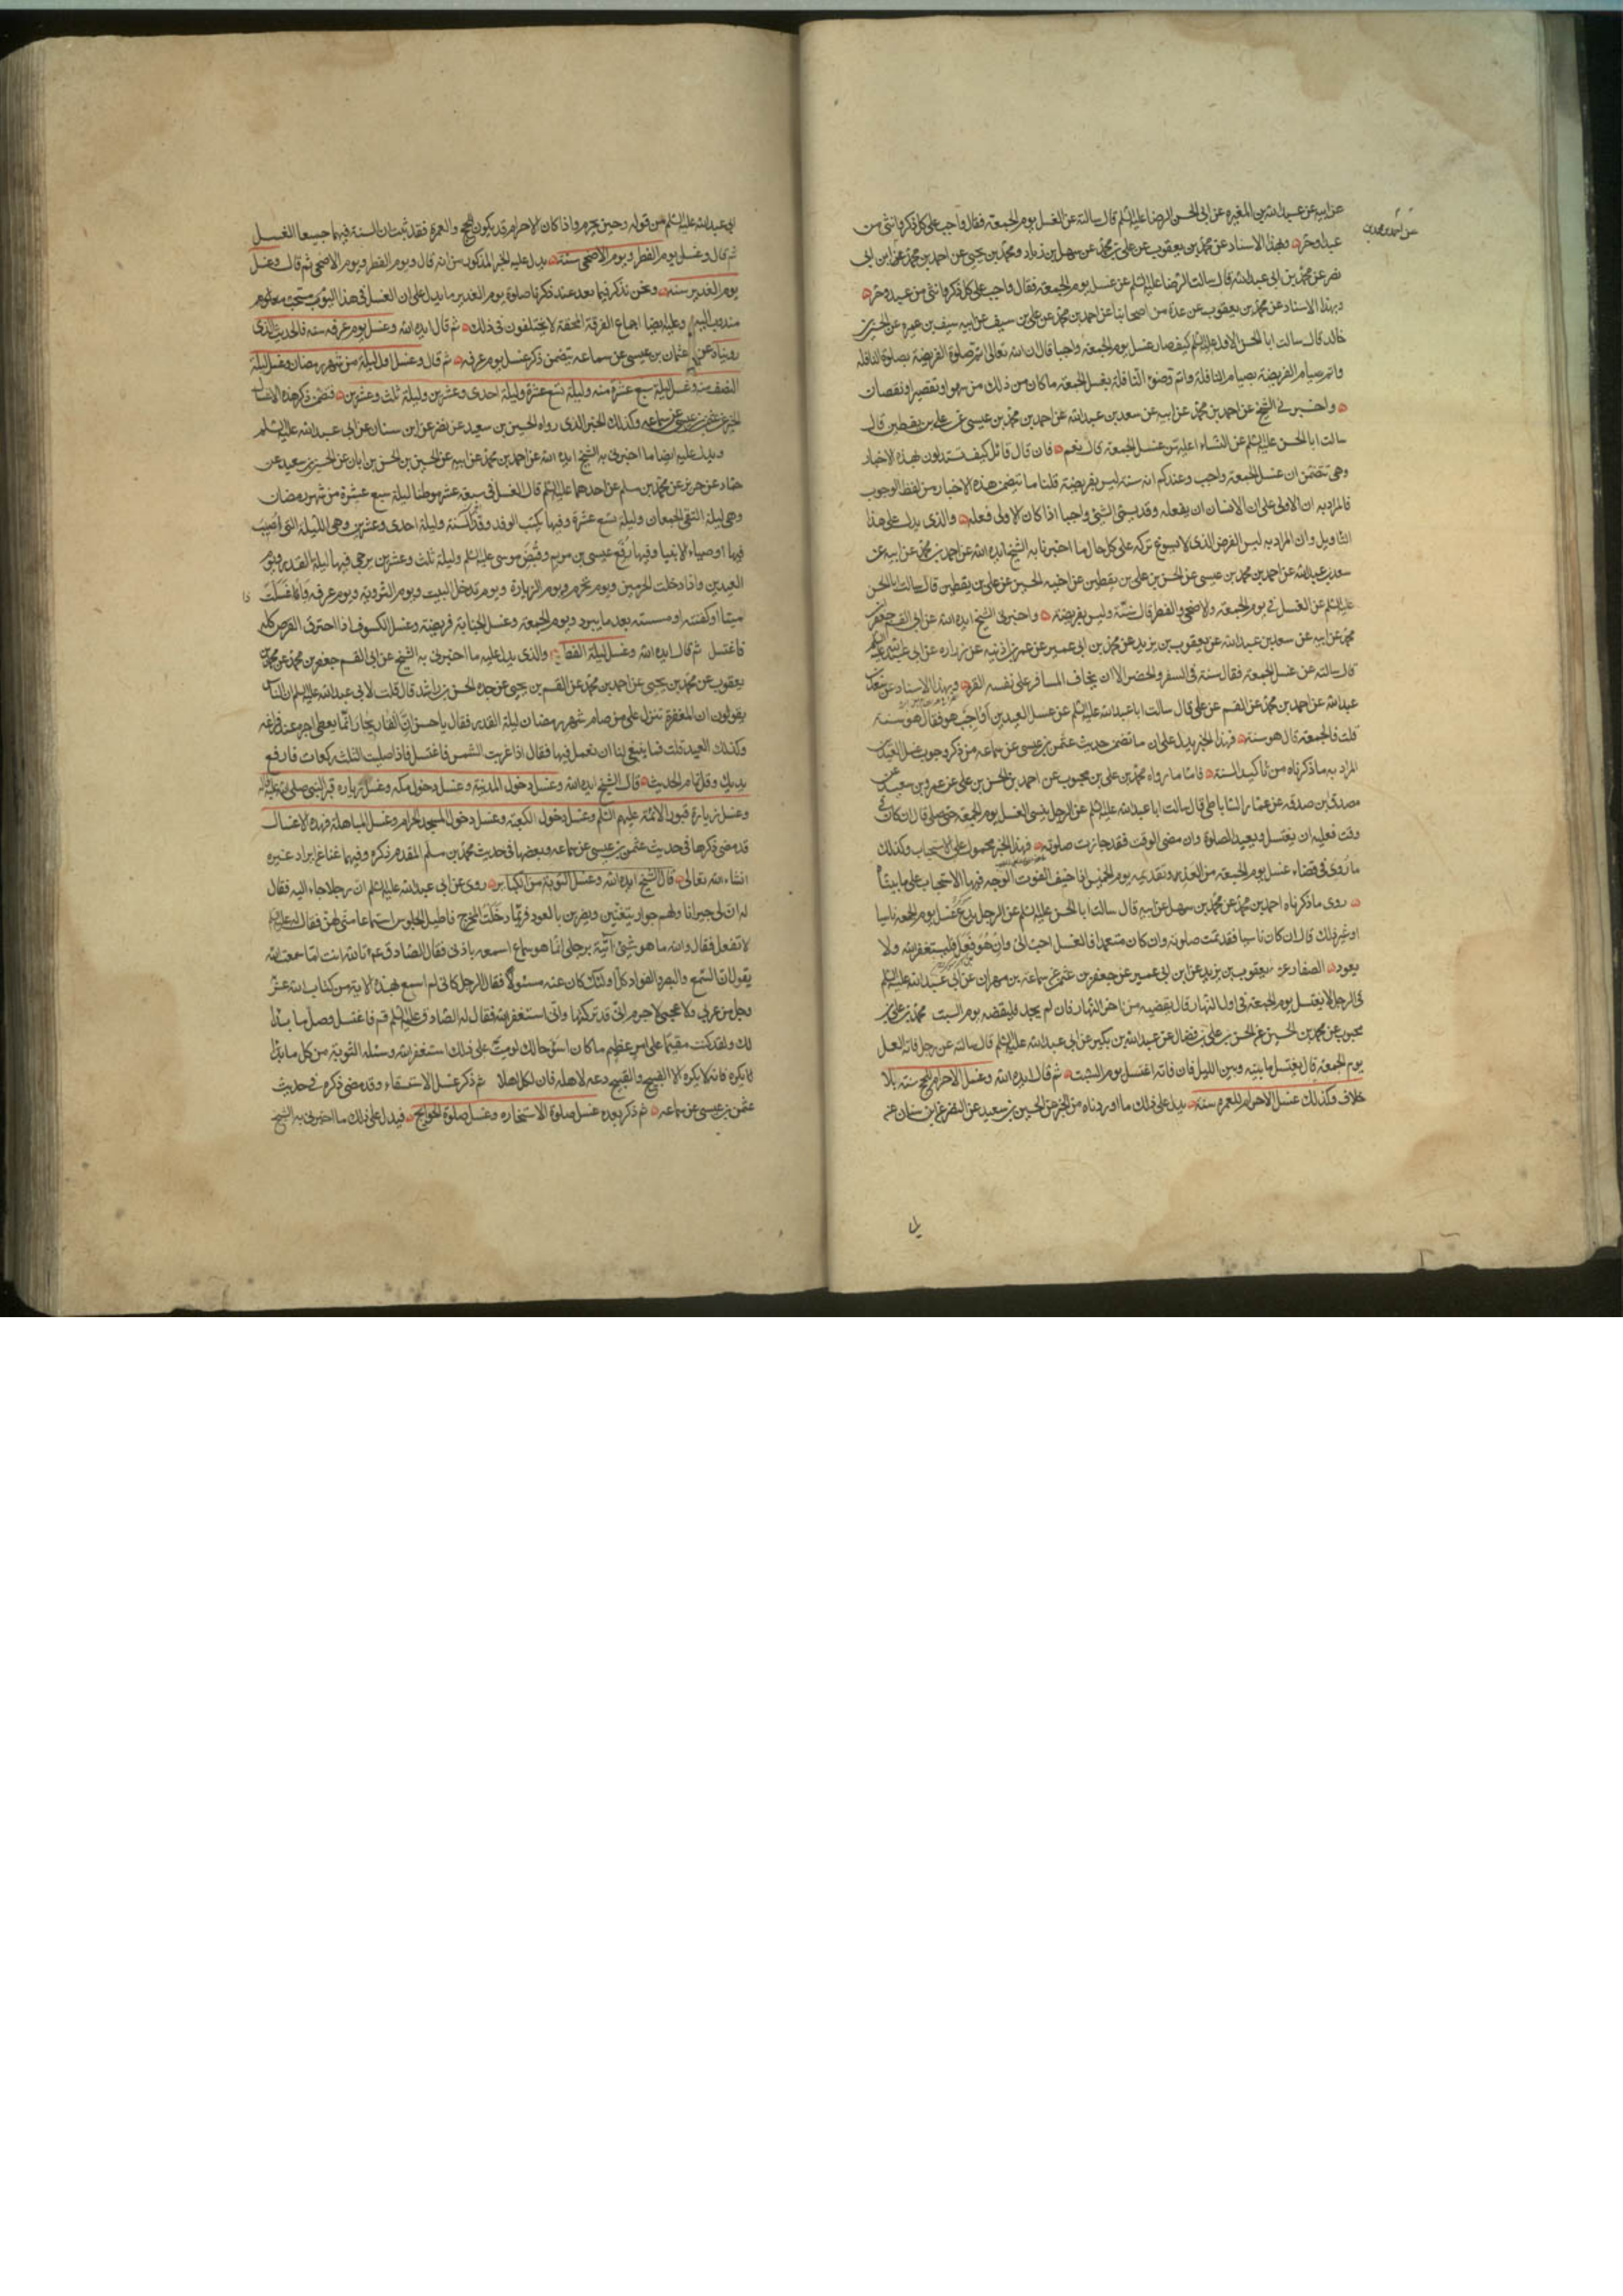 عن ابيه عن عبد الله بن المغيره عن ابى الحسن الرضا عليه السلم قال سالته عن الغسل يوم الجمعه فقال واجب على كل ذكر وانثى من
عبد او حر وبهذا الاسناد عن محمد بن يعقوب عن على بن محمد عن سهل بن زياد ومحمد بن يحيى عن احمد بن محمد عن ابن ابى
نصر عن محمد بن ابى عبد الله قال سالت الرضا عليه السلم عن غسل يوم الجمعه فقال واجب على كل ذكر وانثى من عبد وحر
وبهذا الاسناد عن محمد بن يعقوب عن عدة من اصحابنا عن احمد بن محمد عن على بن سيف عن ابيه سيف بن عميره عن الحسين بن
خالد قال سالت ابا الحسن الاول عليه السلم كيف صار غسل يوم الجمعه واجبا قال ان الله تعالى اتم صلوة الفريضة بصلوة النافله
واتم صيام الفريضة بصيام النافلة واتم وضوء النافلة بغسل الجمعه ما كان من ذلك من سهو او تقصير او نقصان
واخبرنى الشيخ عن احمد بن محمد عن ابيه عن سعد بن عبد الله عن احمد بن محمد بن عيسى عن على بن يقطين قال
سالت ابا الحسن عليه السلم عن النساء اعليهن غسل الجمعه قال نعم فان قال قائل كيف تستدلون بهذه الاخبار
وهى تتضمن ان غسل الجمعه واجب وعندكم انه سنة ليس بفريضة قلنا ما تتضمن هذه الاخبار من لفظ الوجوب
فالمراد به ان الاولى على الانسان ان يفعله وقد يسمى الشئ واجبا اذا كان الاولى فعله والذى يدل على هذا
التاويل وان المراد به ليس الفرض الذى لا يسوغ تركه على كل حال ما اخبرنا به الشيخ ايده الله عن احمد بن محمد عن ابيه عن
سعد بن عبد الله عن احمد بن محمد بن عيسى عن الحسن بن على بن يقطين عن اخيه الحسين عن على بن يقطين قال سالت ابا الحسن
عليه السلم عن الغسل فى يوم الجمعه والاضحى والفطر قال سنة وليس بفريضة واخبرنى الشيخ ايده الله عن ابى القسم جعفر بن
محمد عن ابيه عن سعد بن عبد الله عن يعقوب بن يزيد عن محمد بن ابى عمير عن عمر بن اذينه عن زراره عن ابى عبد الله عليه السلم
قال سالته عن غسل الجمعه فقال سنة فى السفر والحضر الا ان يخاف المسافر على نفسه القر وبهذا الاسناد عن سعد بن
عبد الله عن احمد بن محمد عن القسم عن على قال سالت ابا عبد الله عليه السلم عن غسل العيدين اواجب هو فقال هو سنة
قلت فالجمعة قال هو سنة فهذا الخبر يدل على ان ما تضمن حديث عثمن بن عيسى عن سماعه من ذكر وجوب غسل العيدين
المراد به ما ذكرناه من تاكيد السنة فاما ما رواه محمد بن على بن محبوب عن احمد بن الحسن بن على عن عمرو بن سعيد عن
مصدق بن صدقه عن عمار الساباطى قال سالت ابا عبد الله عليه السلم عن الرجل ينسى الغسل يوم الجمعة حتى صلى قال ان كان فى
وقت فعليه ان يغتسل ويعيد الصلوة وان مضى الوقت فقد جازت صلوته فهذا الخبر محمول على الاستحباب وكذلك
ما روى فى قضاء غسل يوم الجمعه من الغد وتقديمه يوم الخميس اذا خيف الفوت الوجه فيها الاستحباب على ما بيناه
روى ما ذكرناه احمد بن محمد عن محمد بن سهل عن ابيه قال سالت ابا الحسن عليه السلم عن الرجل يدع غسل يوم الجمعه ناسيا
او غير ذلك قال ان كان ناسيا فقد تمت صلوته وان كان متعمدا فالغسل احب الى وان هو فعل فليستغفر الله ولا
يعود الصفار عن يعقوب بن يزيد عن ابن ابى عمير عن جعفر بن عثمن عن سماعه بن مهران عن ابى عبد الله عليه السلم
فى الرجل لا يغتسل يوم الجمعة فى اول النهار قال يقضيه من اخر النهار فان لم يجد فليقضه يوم السبت محمد بن على بن
محبوب عن محمد بن الحسين عن الحسن بن على بن فضال عن عبد الله بن بكير عن ابى عبد الله عليه السلم قال سالته عن رجل فاته الغسل
يوم الجمعة قال يغتسل ما بينه وبين الليل فان فاته اغتسل يوم السبت ثم قال ايده الله وغسل الاحرام للحج سنة بلا
خلاف وكذلك غسل الاحرام للعمرة سنة يدل على ذلك ما اوردناه من الخبر عن الحسين بن سعيد عن النضر عن ابن سنان عن
ابى عبد الله عليه السلم من قوله وحين يحرم واذا كان الاحرام قد يكون للحج والعمرة فقد ثبت ان السنة فيهما جميعا الغسل
ثم قال وغسل يوم الفطر ويوم الاضحى سنة يدل عليه الخبر المذكور من انه قال ويوم الفطر ويوم الاضحى ثم قال وغسل
يوم الغدير سنه ونحن نذكر فيما بعد عند ذكرنا صلوة يوم الغدير ما يدل على ان الغسل فى هذا اليوم مستحب
مندوب اليه وعليه ايضا اجماع الفرقة المحقة لا يختلفون فى ذلك ثم قال ايده الله وغسل يوم عرفه سنه فالحديث الذى
رويناه عن عثمان بن عيسى عن سماعه يتضمن ذكر غسل يوم عرفه ثم قال وغسل اول ليلة من شهر رمضان وغسل ليلة
النصف منه وغسل ليلة سبع عشرة منه وليلة تسع عشرة وليلة احدى وعشرين وليلة ثلث وعشرين فتضمن ذكر هذه الاغسال
الخبر عن عثمن بن عيسى عن سماعه وكذلك الخبر الذى رواه الحسين بن سعيد عن نضر عن ابن سنان عن ابى عبد الله عليه السلم
ويدل عليه ايضا ما اخبرنى به الشيخ ايده الله عن احمد بن محمد عن ابيه عن الحسين بن الحسن بن ابان عن الحسين بن سعيد عن
حماد عن حريز عن محمد بن مسلم عن احدهما عليه السلم قال الغسل فى سبعة عشر موطنا ليلة سبع عشرة من شهر رمضان
وهى ليلة التقى الجمعان وليلة تسع عشرة وفيها يكتب الوفد وفد السنة وليلة احدى وعشرين وهى الليلة التى اصيب
فيها اوصياء الانبيا وفيها رفع عيسى بن مريم وقبض موسى عليه السلم وليلة ثلث وعشرين يرجى فيها ليلة القدر ويوم
العيدين واذا دخلت الحرمين ويوم تحرم ويوم الزيارة ويوم تدخل البيت ويوم التروية ويوم عرفه واذا غسلت
ميتا او كفنته او مسسته بعد ما يبرد ويوم الجمعة وغسل الجنابة فريضة وغسل الكسوف اذا احترق القرص كله
فاغتسل ثم قال ايده الله وغسل ليلة الفطر والذى يدل عليه ما اخبرنى به الشيخ عن ابى القسم جعفر بن محمد عن محمد بن
يعقوب عن محمد بن يحيى عن احمد بن محمد عن القسم بن يحيى عن جده الحسن بن راشد قال قلت لابى عبد الله عليه السلم ان الناس
يقولون ان المغفرة تنزل على من صام شهر رمضان ليلة القدر فقال يا حسن ان القاريجار انما يعطى اجره عند فراغه
وكذلك العيد قلت فما ينبغى لنا ان نعمل فيها فقال اذا غربت الشمس فاغتسل فاذا صليت الثلث ركعات فارفع
يديك وقل تمام الحديث قال الشيخ ايده الله وغسل دخول المدينة وغسل دخول مكه وغسل زياره قبر النبى صلى الله عليه واله
وغسل زيارة قبور الائمة عليهم السلم وغسل دخول الكعبة وغسل دخول المسجد الحرام وغسل المباهلة فهذه الاغسال
قد مضى ذكرها فى حديث عثمن بن عيسى عن سماعه وبعضها فى حديث محمد بن مسلم المقدم ذكره وفيهما غنا عن ايراد غيره
انشاء الله تعالى قال الشيخ ايده الله وغسل التوبة من الكبائر روى عن ابى عبد الله عليه السلم ان رجلا جاء اليه فقال
له ان لى جيرانا ولهم جوار يتغنين ويضربن بالعود فربما دخلت المخرج فاطيل الجلوس استماعا منى لهن فقال له عليه السلم
لا تفعل فقال والله ما هو شئ اتيه برجلى انما هو سماع اسمعه باذنى فقال الصادق عم تالله انت اما سمعت الله
يقول ان السمع والبصر والفواد كل اولئك كان عنه مسئولا فقال الرجل كانى لم اسمع بهذه الاية من كتاب الله عز
وجل من عربى ولا عجمى لا جرم انى قد تركتها وانى استغفر الله فقال له الصادق عليه السلم قم فاغتسل وصل ما بدا
لك ولقد كنت مقيما على امر عظيم ما كان اسوء حالك لو مت على ذلك استغفر الله وسئله التوبة من كل ما يكره
فانه لا يكره الا القبيح والقبيح دعه لاهله فان لكل اهلا ثم ذكر غسل الاستسقاء وقد مضى ذكره فى حديث
عثمن بن عيسى عن سماعه ثم ذكر بعده غسل صلوة الاستخاره وغسل صلوة الحوايج فيدل على ذلك ما اخبرنى به الشيخ